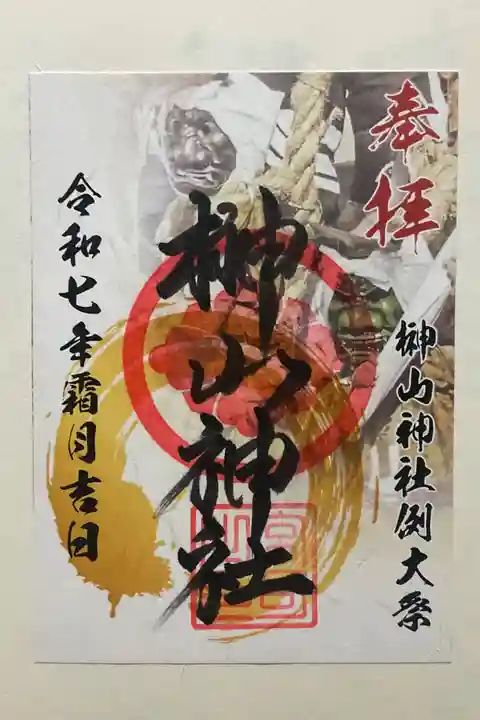 奉拝
榊山神社例大祭
榊山神社
令和七年霜月吉日